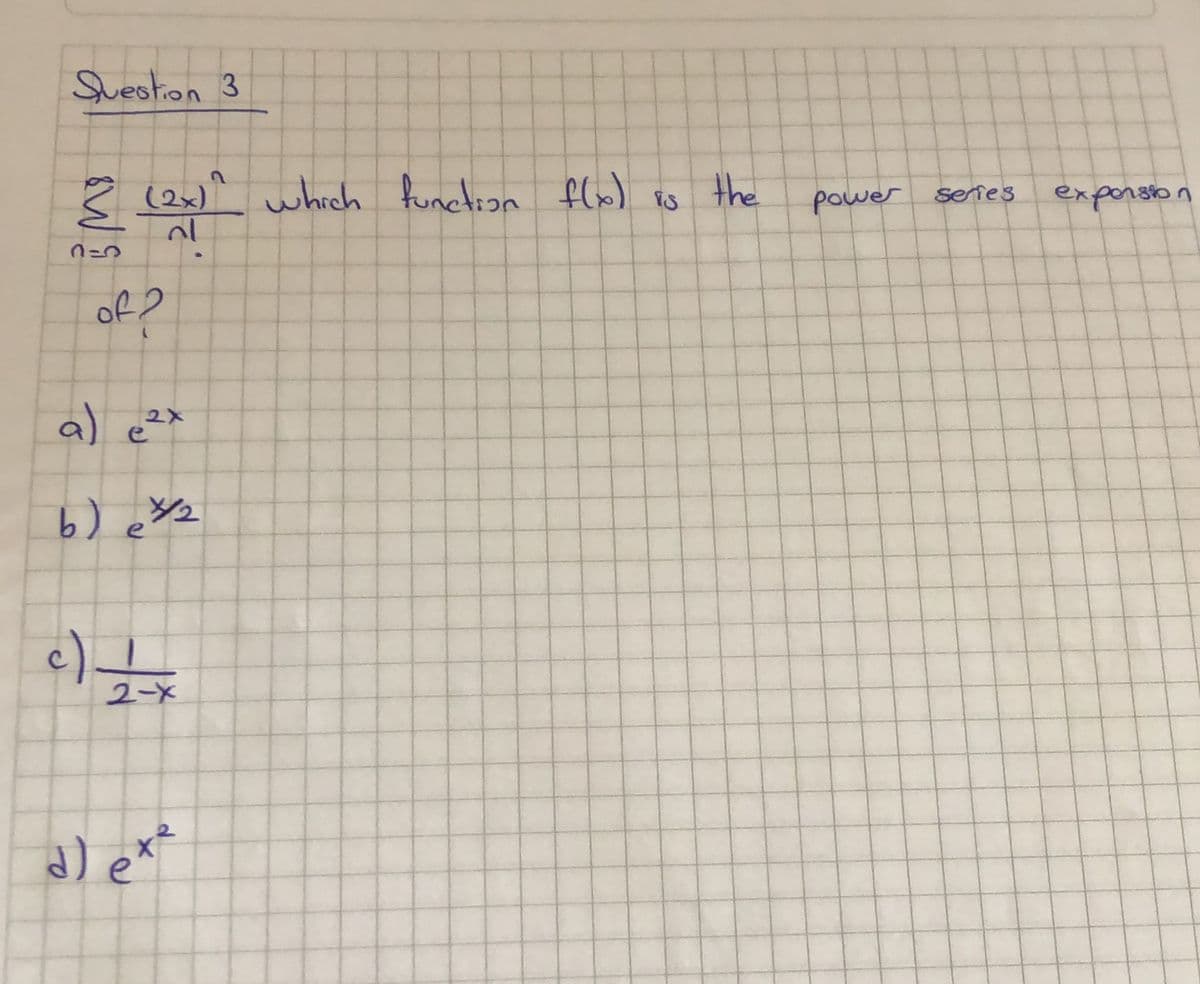 Question 3
∞
Σ (2x)^n / n! which function f(x) is the power series expansion
n=0
of?
a) e^2x
b) e^x/2
c) 1 / 2-x
d) e^x^2